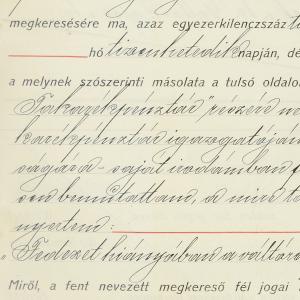 megkeresésére ma, azaz egyezerkilenczszáz
hó tizenhetedik napján, dé
a melynek szószerinti másolata a tulsó oldalo
Takarékpénztár" részére
karékpénztár igazgatóján
ságára - saját irodámban
bemutattam, a mire
nyertem:
„Fedezet hiányában a váltó
Miről, a fent nevezett megkereső fél jogai